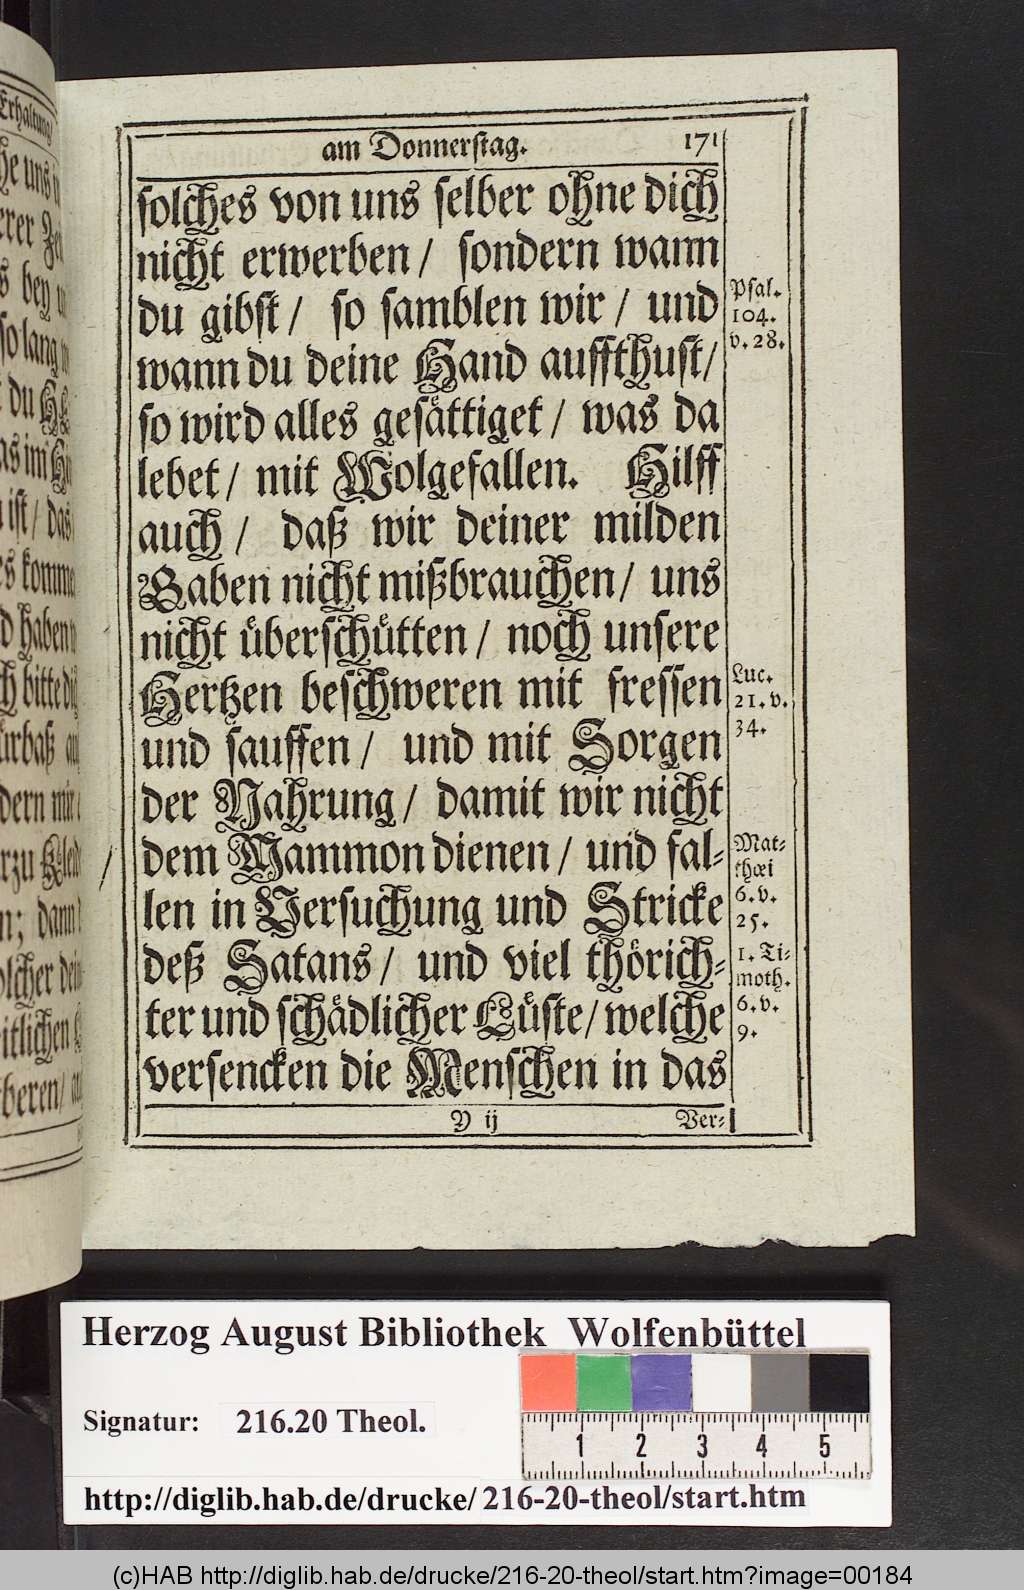 am Donnerstag. 171
solches von uns selber ohne dich
nicht erwerben / sondern wann
du gibst / so samblen wir / und
wann du deine Hand auffthust /
so wird alles gesättiget / was da
lebet / mit Wolgefallen. Hilff
auch / daß wir deiner milden
Gaben nicht mißbrauchen / uns
nicht überschütten / noch unsere
Hertzen beschweren mit fressen
und sauffen / und mit Sorgen
der Nahrung / damit wir nicht
dem Mammon dienen / und fal-
len in Versuchung und Stricke
deß Satans / und viel thörich-
ter und schädlicher Lüste / welche
versencken die Menschen in das
Y ij Ver-
Psal.
104.
v. 28.
Luc.
21. v.
34.
Mat-
thæi
6. v.
25.
1. Ti-
moth.
6. v.
9.
Erhaltung
he uns
bey
so lang
du
ist / das
komme
haben
bitte
dern mir
rzu Kled
n; dann
olcher dein
itlichen
beren /
Herzog August Bibliothek Wolfenbüttel
Signatur: 216.20 Theol.
1 2 3 4 5
http://diglib.hab.de/drucke/216-20-theol/start.htm
(c)HAB http://diglib.hab.de/drucke/216-20-theol/start.htm?image=00184